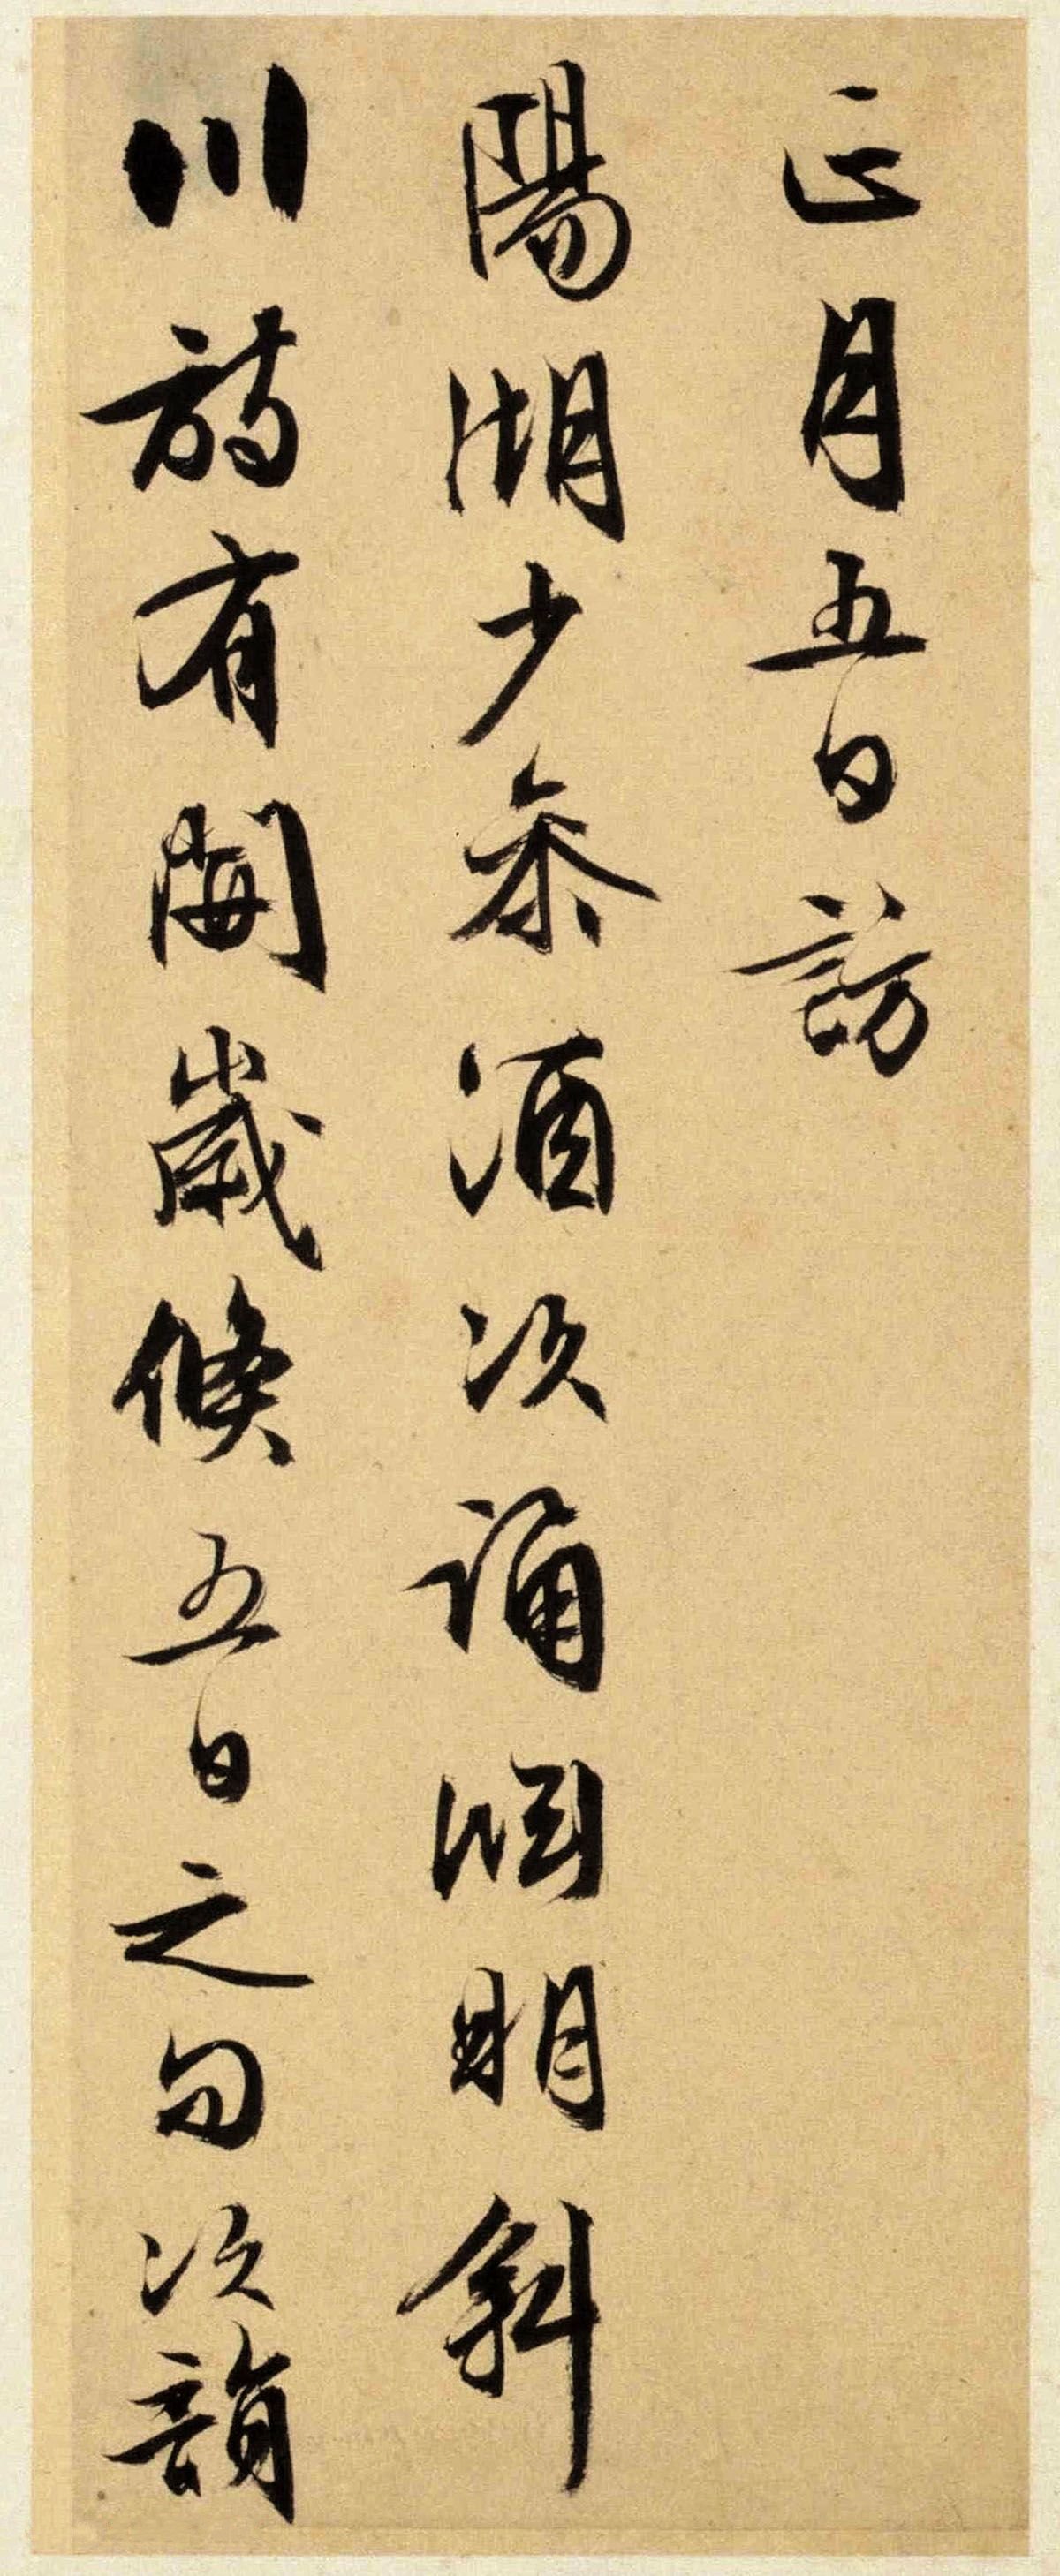 正月五日訪
陽湖少參酒次誦淵明斜
川詩有開歲倐五日之句次韻